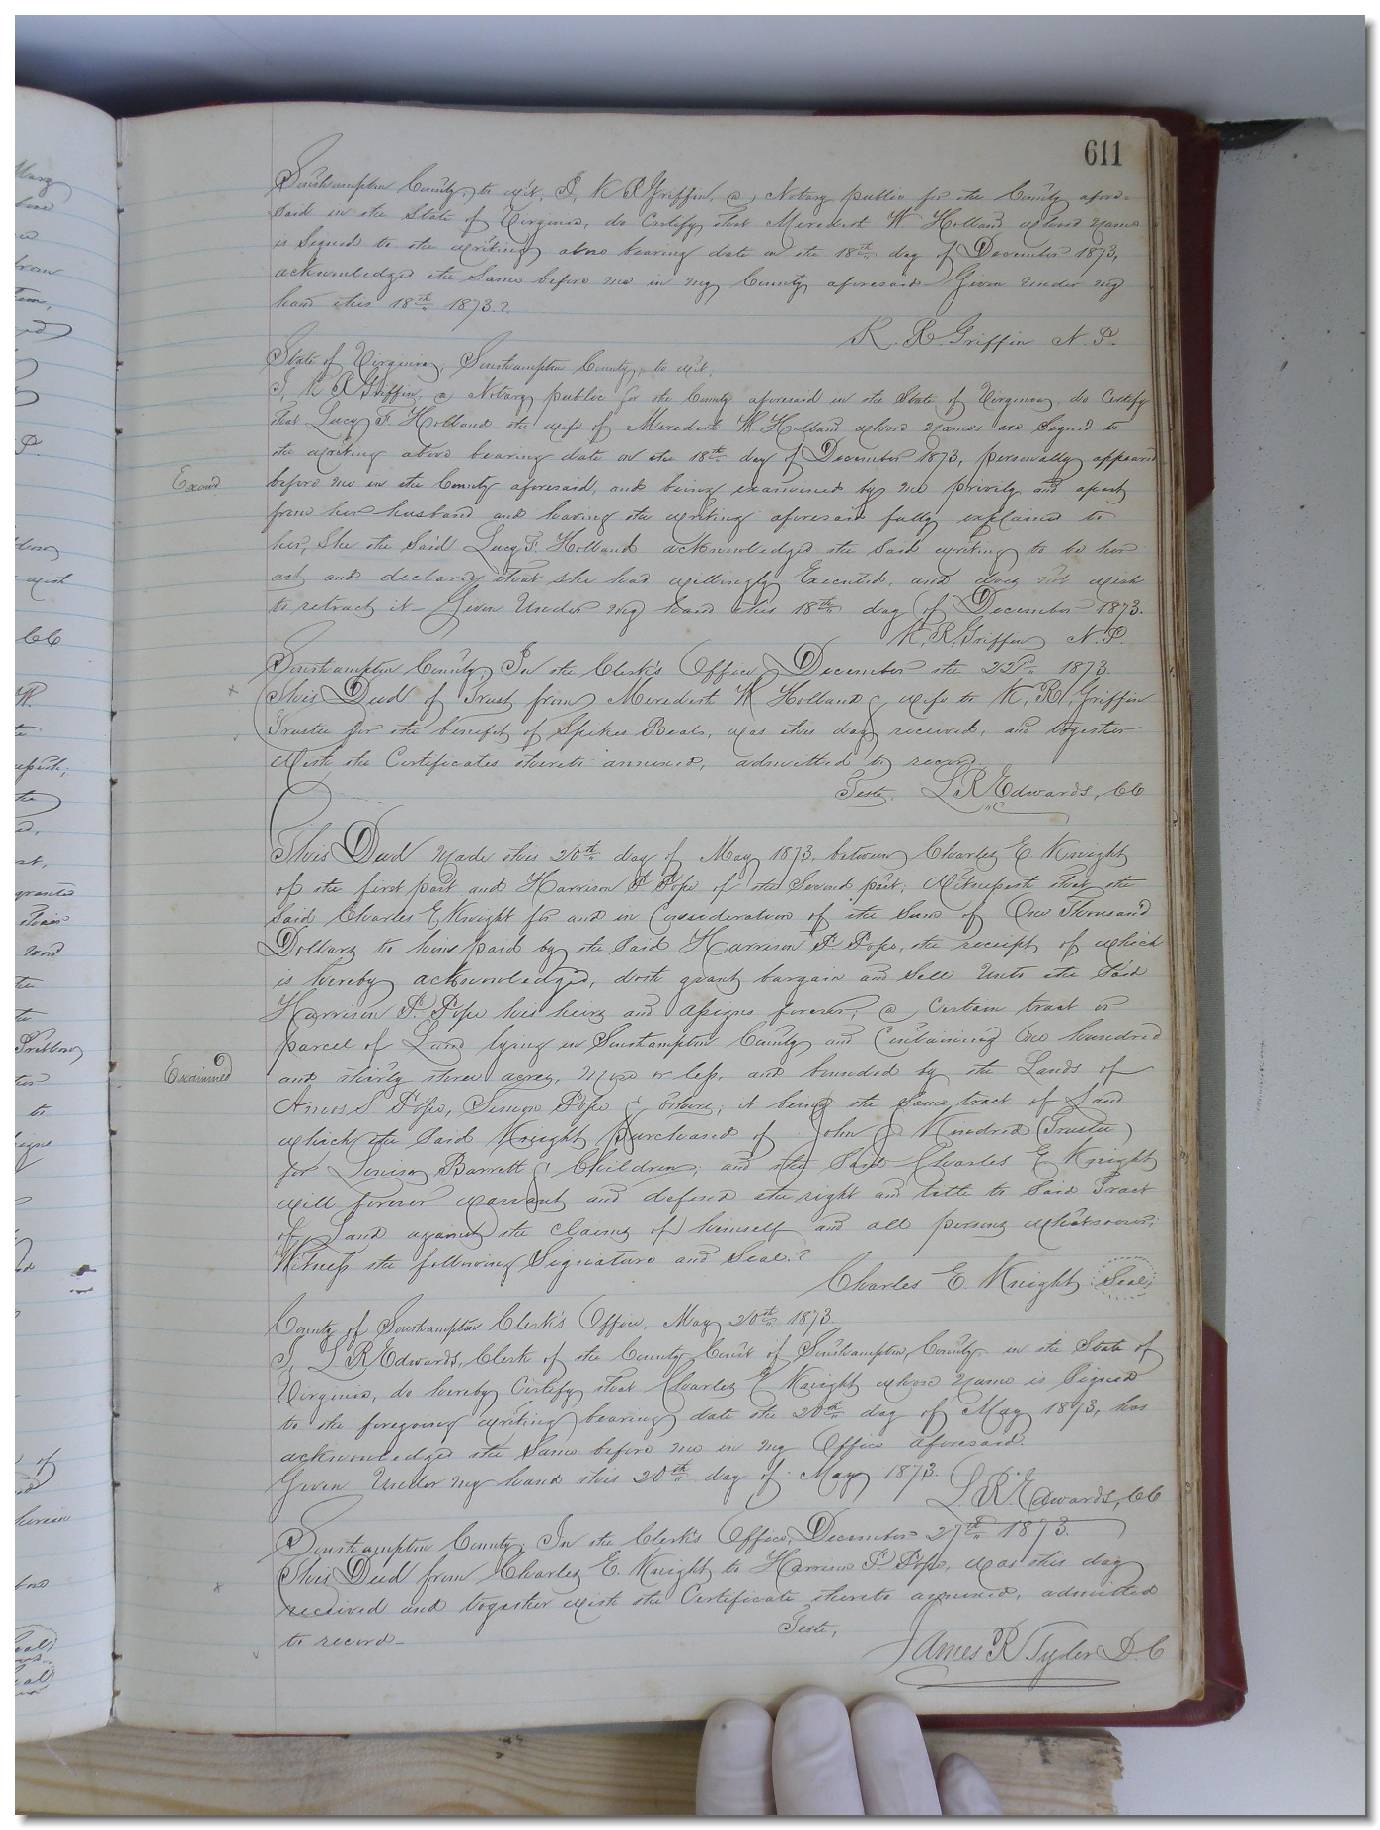 611
Southampton County, to wit, I, K R Griffin, a Notary public for the County afore-
said in the State of Virginia, do Certify that Meredith W Holland whose name
is signed to the writing above bearing date on the 18th day of December 1873,
acknowledged the same before me in my County aforesaid Given under my
hand this 18th 1873.
K. R. Griffin N. P.
State of Virginia, Southampton County, to wit,
I, K R Griffin, a Notary public for the County aforesaid in the State of Virginia, do Certify
that Lucy F Holland the wife of Meredith W Holland whose names are signed to
the writing above bearing date on the 18th day of December 1873, personally appeared
Examd
before me in the County aforesaid, and being examined by me privily and apart
from her husband and having the writing aforesaid fully explained to
her, She the said Lucy F. Holland acknowledged the said writing to be her
act, and declared that she had willingly Executed, and does not wish
to retract it - Given Under my hand this 18th day of December 1873.
K, R, Griffin N. P.
Southampton County, In the Clerk's Office December the 22d 1873.
This Deed of Trust from Meredith W Holland & wife to K, R, Griffin
Trustee for the benefit of Spikes Beals, was this day received, and together
With the Certificates thereto annexed, admitted to record
Teste, L R Edwards, CC
This Deed made this 20th day of May 1873, between Charles E Knight
of the first part and Harrison P. Pope of the second part; Witnesseth that the
said Charles E Knight for and in Consideration of the sum of One Thousand
Dollars to him paid by the said Harrison P. Pope, the receipt of which
is hereby acknowledged, doth grant bargain and sell Unto the said
Harrison P. Pope his heirs and assigns forever, a certain tract or
parcel of Land lying in Southampton County and Containing One hundred
Examined
and thirty three acres, more or less, and bounded by the Lands of
Amos S Pope, Simon Pope & others; it being the same tract of Land
which the said Knight purchased of John J Kindred (Trustee)
for Louisa Barrett & Children; and the said Charles E Knight
will forever warrant and defend the right and title to said Tract
of Land against the claims of himself and all persons whatsoever;
Witness the following Signature and Seal.
Charles E. Knight Seal
County of Southampton Clerk's Office, May 20th 1873
I, L R Edwards, Clerk of the County Court of Southampton, County, in the State of
Virginia, do hereby Certify that Charles E Knight whose name is signed
to the foregoing writing bearing date the 20th day of May 1873, has
acknowledged the same before me in my Office aforesaid.
Given Under my hand this 20th day of May 1873.
L. R. Edwards, CC
Southampton County, In the Clerk's Office, December 27th 1873.
This Deed from Charles E. Knight to Harrison P. Pope, was this day
received and together with the Certificate thereto annexed, admitted
to record-
Teste,
James R Tyler D. C